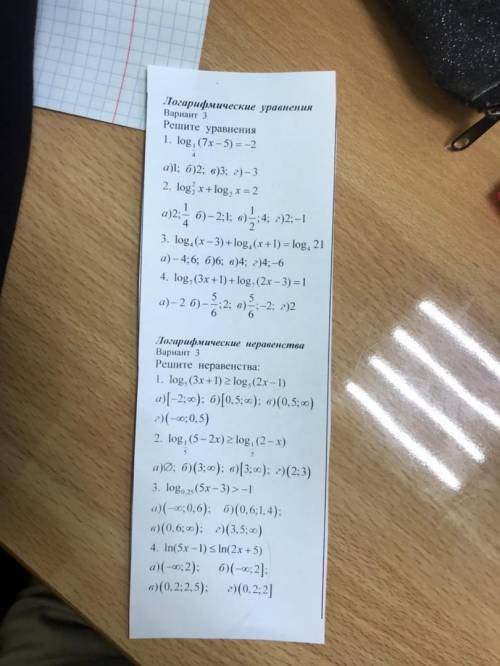 Логарифмические уравнения
Вариант 3
Решите уравнения
1. log_{1/4}(7x − 5) = −2
а)1; б)2; в)3; г)−3
2. log₂² x + log₂ x = 2
а)2; 1/4 б)−2;1; в) 1/2; 4; г)2;−1
3. log₄(x − 3) + log₄(x + 1) = log₄ 21
а)−4;6; б)6; в)4; г)4;−6
4. log₇(3x + 1) + log₇(2x − 3) = 1
а)−2 б)−5/6; 2; в) 5/6; −2; г)2
Логарифмические неравенства
Вариант 3
Решите неравенства:
1. log₅(3x + 1) ≥ log₅(2x − 1)
а)[−2;∞); б)[0,5;∞); в)(0,5;∞)
г)(−∞;0,5)
2. log_{1/5}(5 − 2x) ≥ log_{1/5}(2 − x)
а)∅; б)(3;∞); в)[3;∞); г)(2;3)
3. log₀,₂₅(5x − 3) > −1
а)(−∞;0,6); б)(0,6;1,4);
в)(0,6;∞); г)(3,5;∞)
4. ln(5x − 1) ≤ ln(2x + 5)
а)(−∞;2); б)(−∞;2];
в)(0,2;2,5); г)(0,2;2]